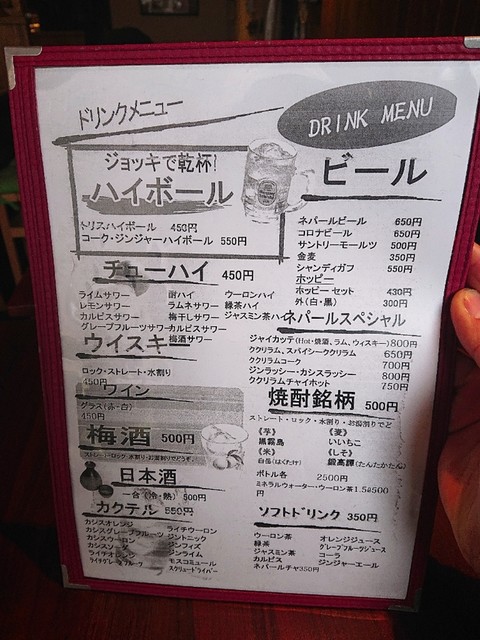 ドリンクメニュー
DRINK MENU
ジョッキで乾杯!
ハイボール
トリスハイボール 450円
コーク・ジンジャーハイボール 550円
チューハイ 450円
ライムサワー
レモンサワー
カルピスサワー
グレープフルーツサワー
酎ハイ
ラムネサワー
梅干しサワー
カルピスサワー
梅酒サワー
ウーロンハイ
緑茶ハイ
ジャスミン茶ハイ
ウイスキー
ロック・ストレート・水割り
450円
ワイン
グラス(赤・白)
450円
梅酒 500円
ストレート・ロック・水割り・お湯割りでどうぞ
日本酒
一合(冷・熱) 500円
カクテル 550円
カシスオレンジ
カシスグレープフルーツ
カシスウーロン
カシスソーダ
ライチオレンジ
ライチグレープフルーツ
ライチウーロン
ジントニック
ジンフィズ
ジンライム
モスコミュール
スクリュードライバー
ビール
ネパールビール 650円
コロナビール 650円
サントリーモールツ 500円
金麦 350円
シャンディガフ 550円
ホッピー
ホッピーセット 430円
外(白・黒) 300円
ネパールスペシャル
ジャイカッテ(Hot・焼酒、ラム、ウィスキー)800円
ククリラム、スパイシーククリラム 650円
ククリラムコーク 700円
ジンラッシー・カシスラッシー 800円
ククリラムチャイホット 750円
焼酎銘柄 500円
ストレート・ロック・水割り・お湯割りでど
《芋》
黒霧島
《米》
白岳(はくたけ)
《麦》
いいちこ
《しそ》
鍛高譚(たんたかたん)
ボトル各 2500円
ミネラルウォーター・ウーロン茶1.5ℓ500
円
ソフトドリンク 350円
ウーロン茶
緑茶
ジャスミン茶
カルピス
ネパールチャ350円
オレンジジュース
グレープフルーツジュース
コーラ
ジンジャーエール